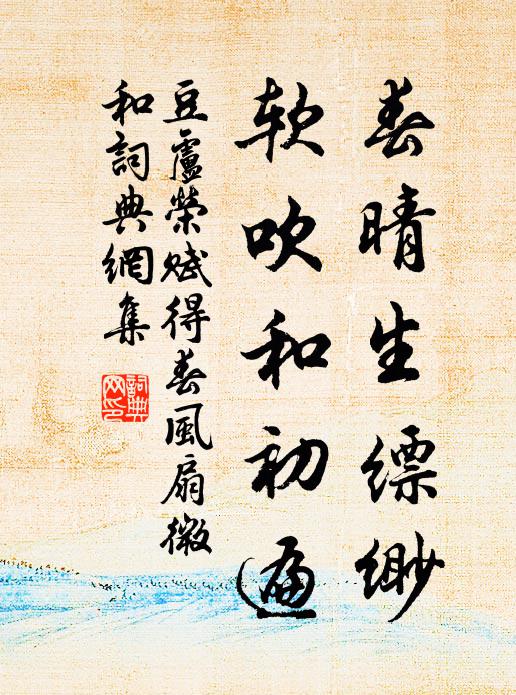 春晴生缥缈
软吹和初遍
豆盧榮賦得春風扇微
和詞典網集
詞典
网印